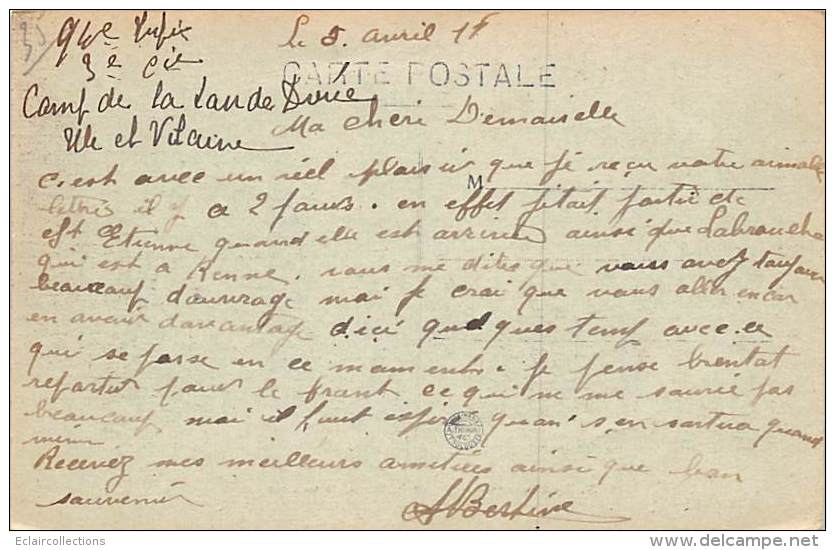 Le 5. avril 17
3e Cie
CARTE POSTALE
Camp de la Lande Douée
Ille et Vilaine
Ma chéri Demaiselle
c'est avec un réel plaisir que je reçu votre aimable
M
lettre il y a 2 jours. en effet j'était partie de
St Etienne quand elle est arrivée ainsi que Labrouche
qui est a Renne. vous me dites que vous avez toujour
beaucoup d'ouvrage mai je crai que vous aller encor
en avoir davantage d'ici quelques temp avec ce
qui se passe en ce moment. je pense bientot
repartir pour le front ce qui ne me sourie pas
beaucoup mai il faut espéré quon s'en sortira quand
mim
Recevez mes meilleurs amitiées ainsi que bon
souvenir
Eclaircollections
www.delcampe.net